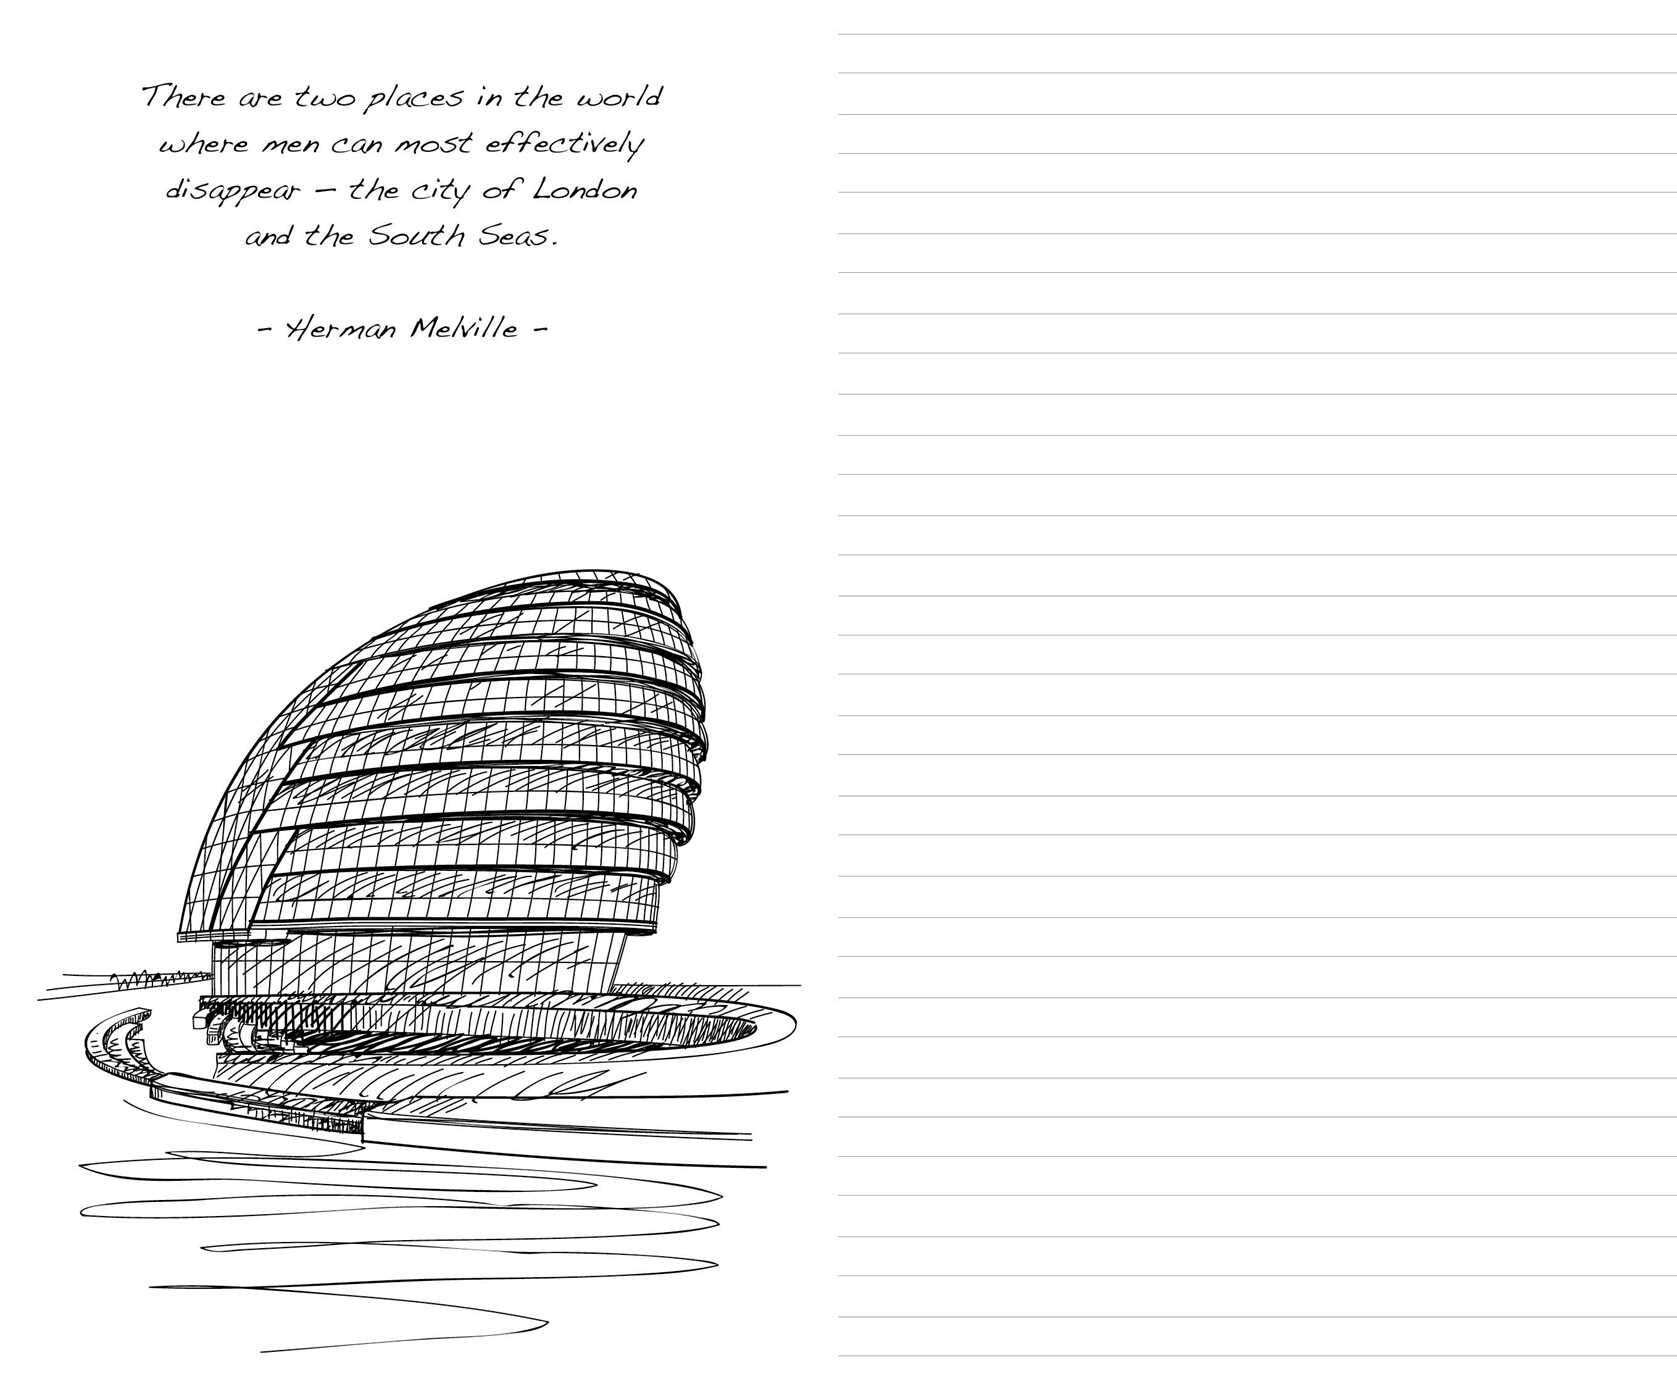 There are two places in the world
where men can most effectively
disappear – the city of London
and the South Seas.
- Herman Melville -